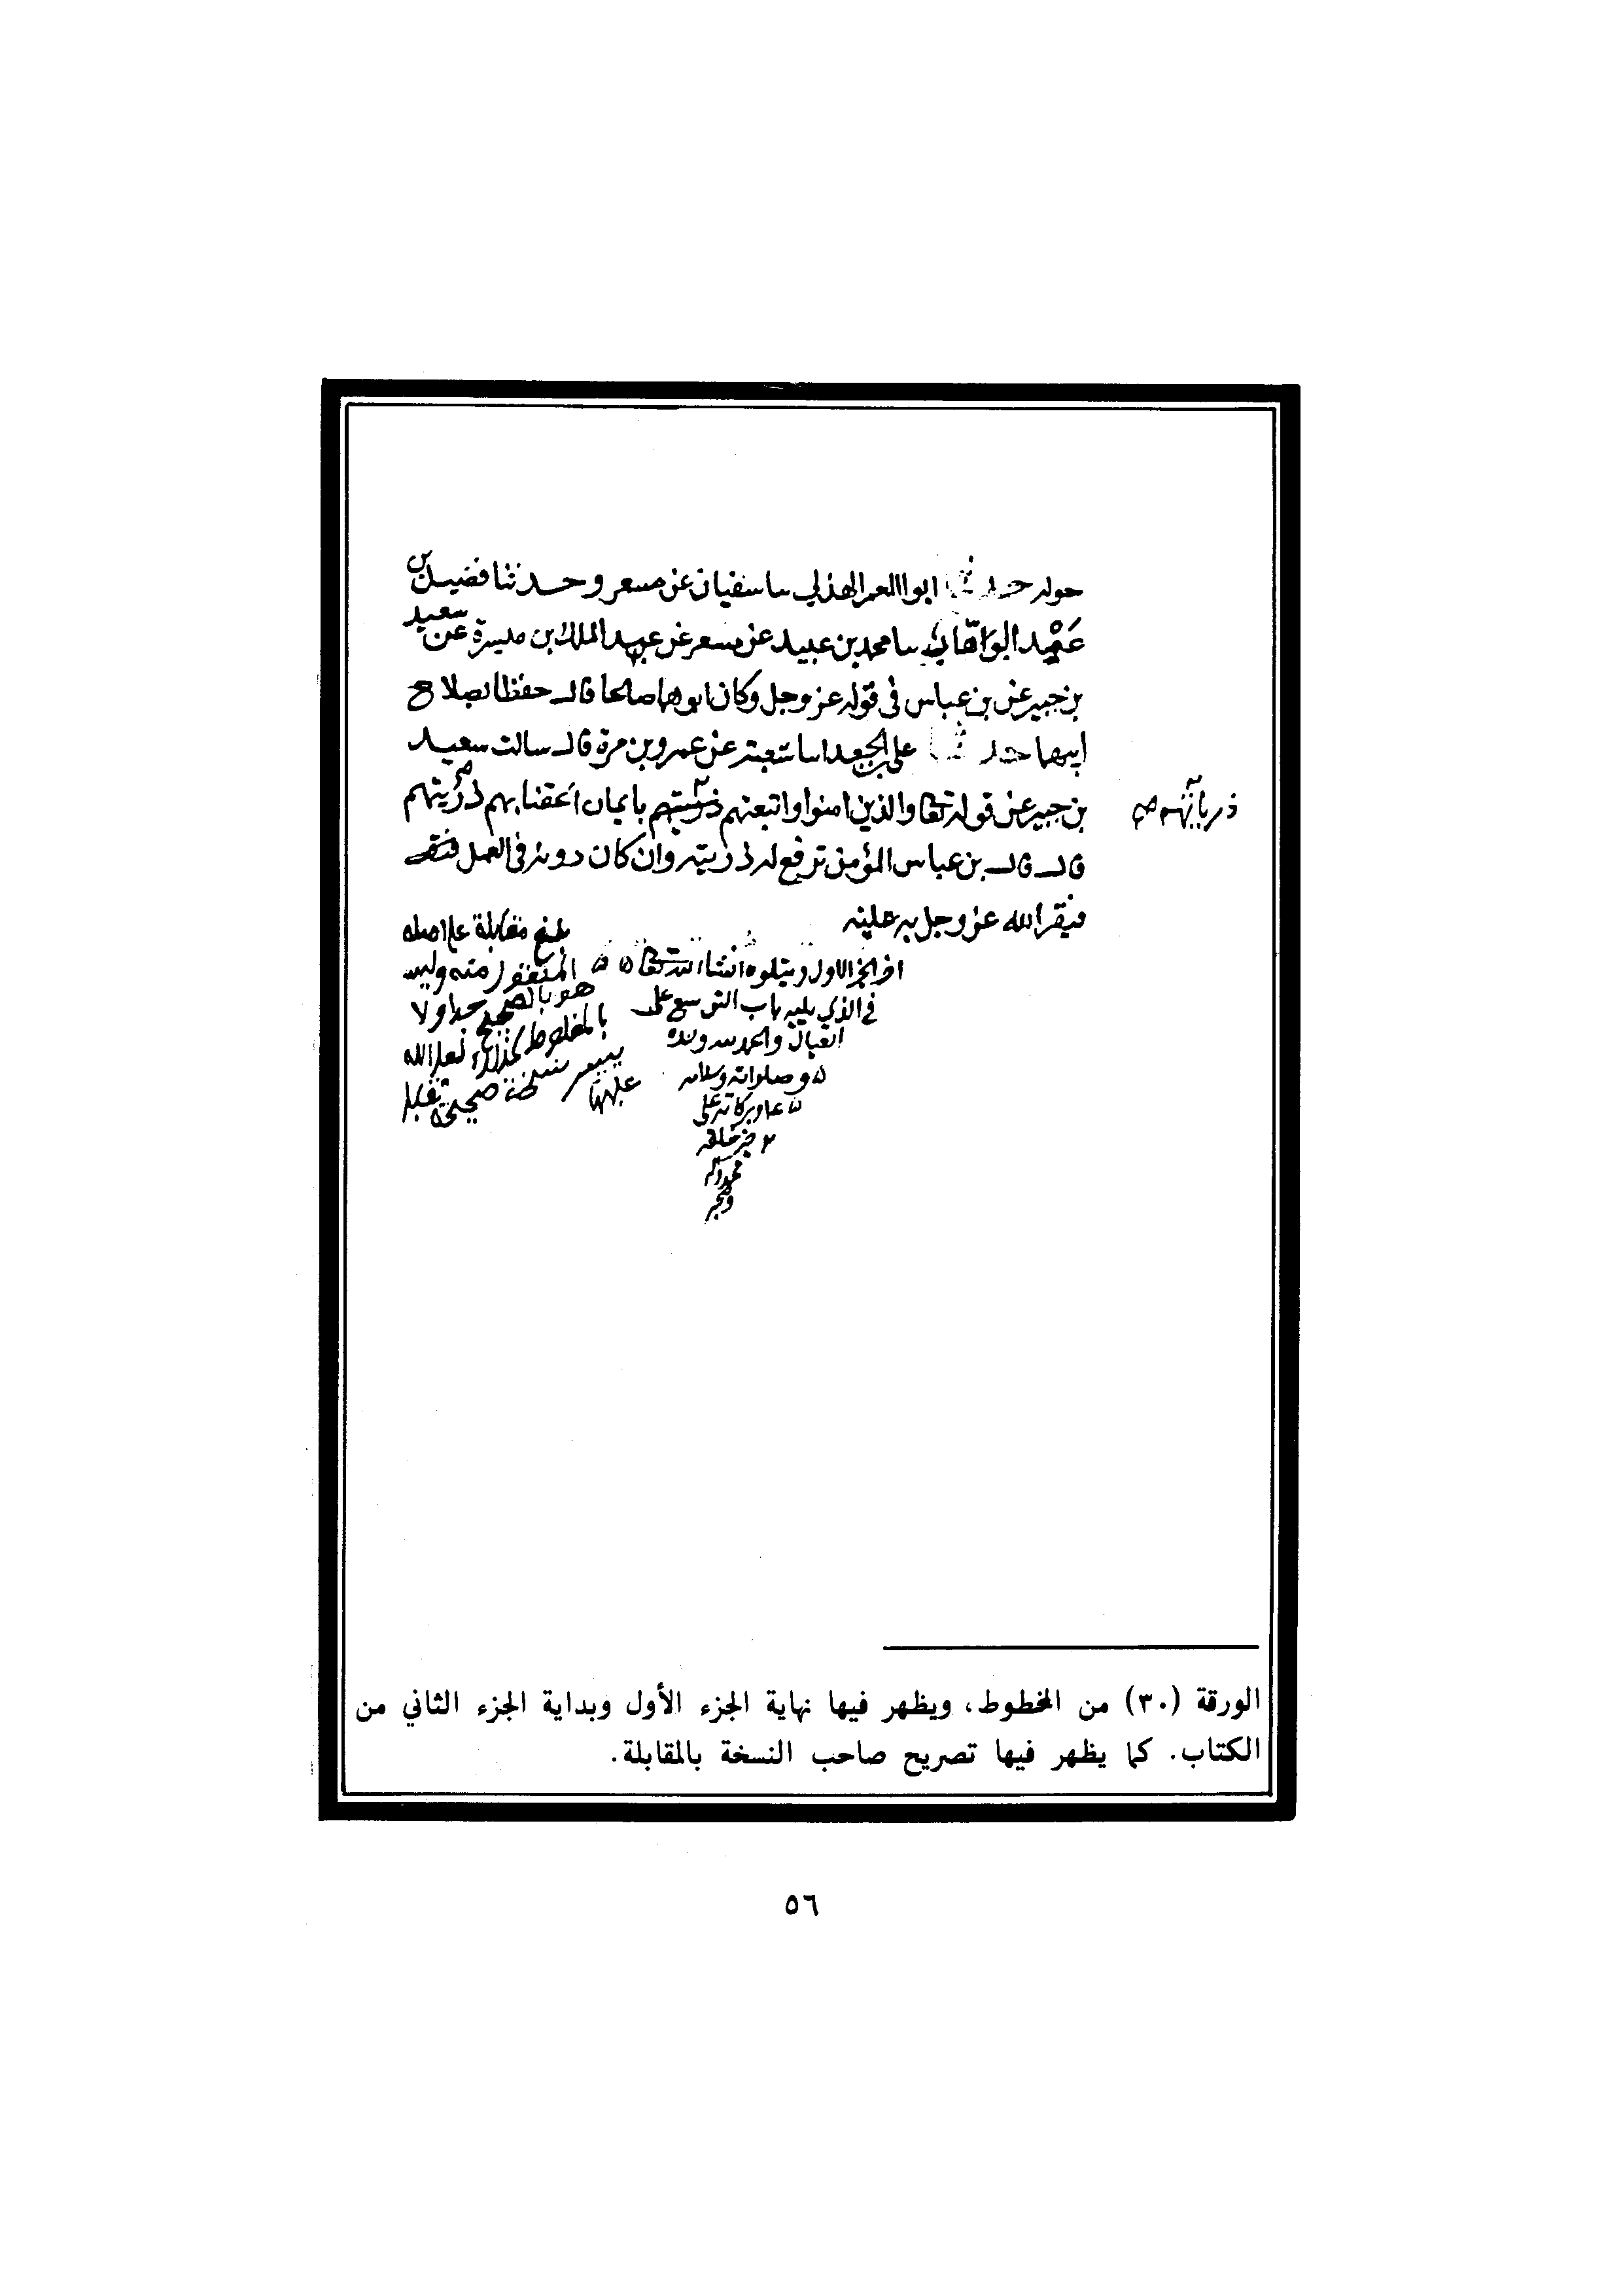 حوله حدثنا ابواالعمر الهذلي سا سفيان عن مسعر وحدثنا فضيل بن
عبد الوهاب سا محمد بن عبيد عن مسعر عن عبد الملك بن ميسرة عن سعيد
بن جبير عن بن عباس في قوله عز وجل وكان ابوهما صالحا قال حفظا لصلاح
ابيهما حدثنا علي بن الجعد اسا شعبة عن عمرو بن مرة قال سالت سعيد
بن جبير عن قوله تعا والذين امنوا واتبعتهم ذريتهم بايمان الحقنا بهم ذريتهم
ذرياتهم صح
قال قال بن عباس المؤمن ترفع له ذريته وان كان دونه في العمل
فيقر الله عز وجل به عينه
اخر الجزء الاول ويتلوه انشا الله تعا
في الذي يليه باب التوسع على
العيال والحمد لله وحده
وصلواته وسلامه
وبركاته على
خير خلقه
محمد واله
وصحبه
بلغ مقابلة على اصله
المنقول منه وليس
هو بالصحيح جدا ولا
بالمغلوط كذلك لعل الله
ييسر نسخة صحيحة تقابل
عليها
الورقة (٣٠) من المخطوط، ويظهر فيها نهاية الجزء الأول وبداية الجزء الثاني من
الكتاب. كما يظهر فيها تصريح صاحب النسخة بالمقابلة.
٥٦